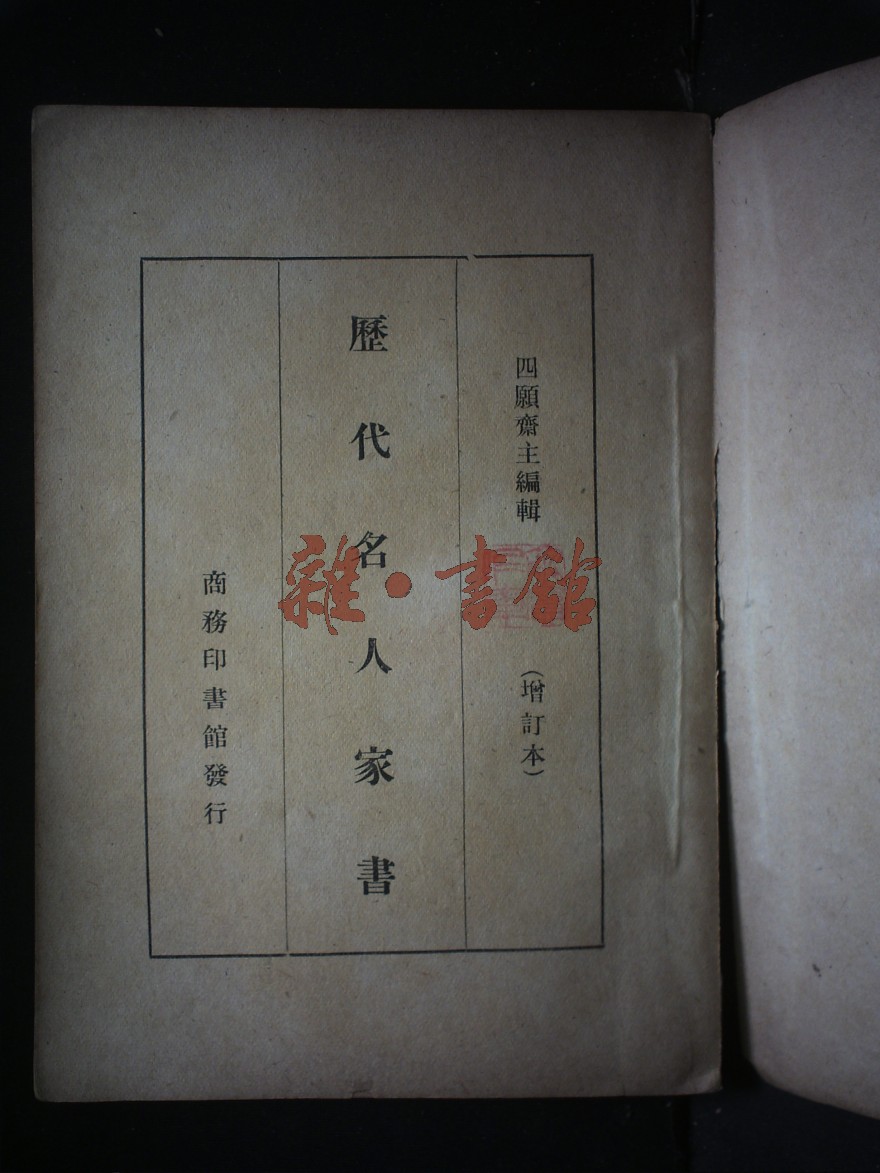 四願齋主編輯
(增訂本)
歷代名人家書
商務印書館發行
雜·書館